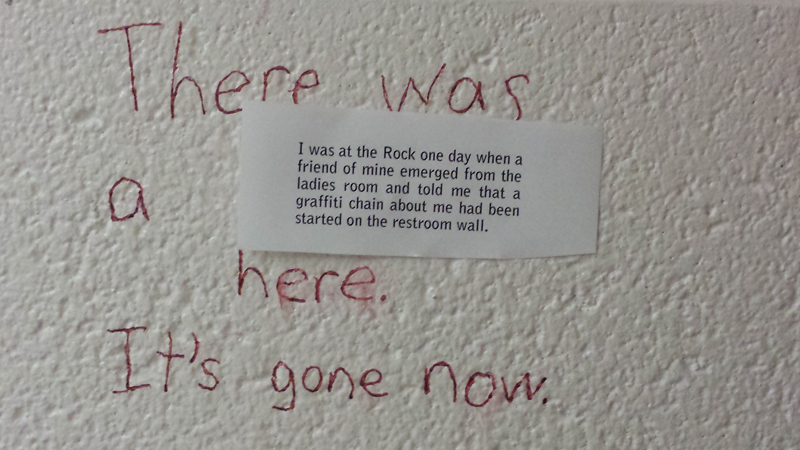 There was
I was at the Rock one day when a
friend of mine emerged from the
ladies room and told me that a
graffiti chain about me had been
started on the restroom wall.
a
here.
It's gone now.